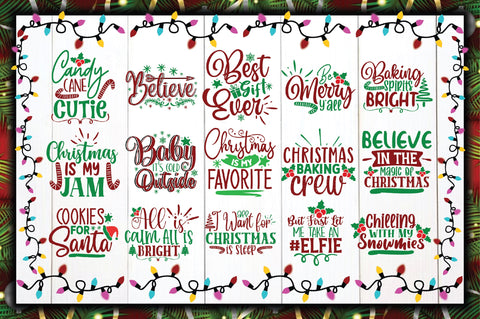 Candy
CANE
CUTiE
Believe
Best
Gift
Ever
Be
Merry
y'all
Baking
SPIRITS
BRIGHT
Christmas
IS MY
JAM
Baby
IT'S COLD
Outside
Christmas
IS MY
FAVORITE
CHRISTMAS
BAKING
crew
BELIEVE
IN THE
MAGIC OF
CHRISTMAS
COOKIES
FOR
Santa
All is
CALM ALL IS
BRIGHT
All
I Want for
CHRISTMAS
IS SLEEP
But First Let
ME TAKE AN
#ELFIE
CHILLING
WITH MY
Snowmies